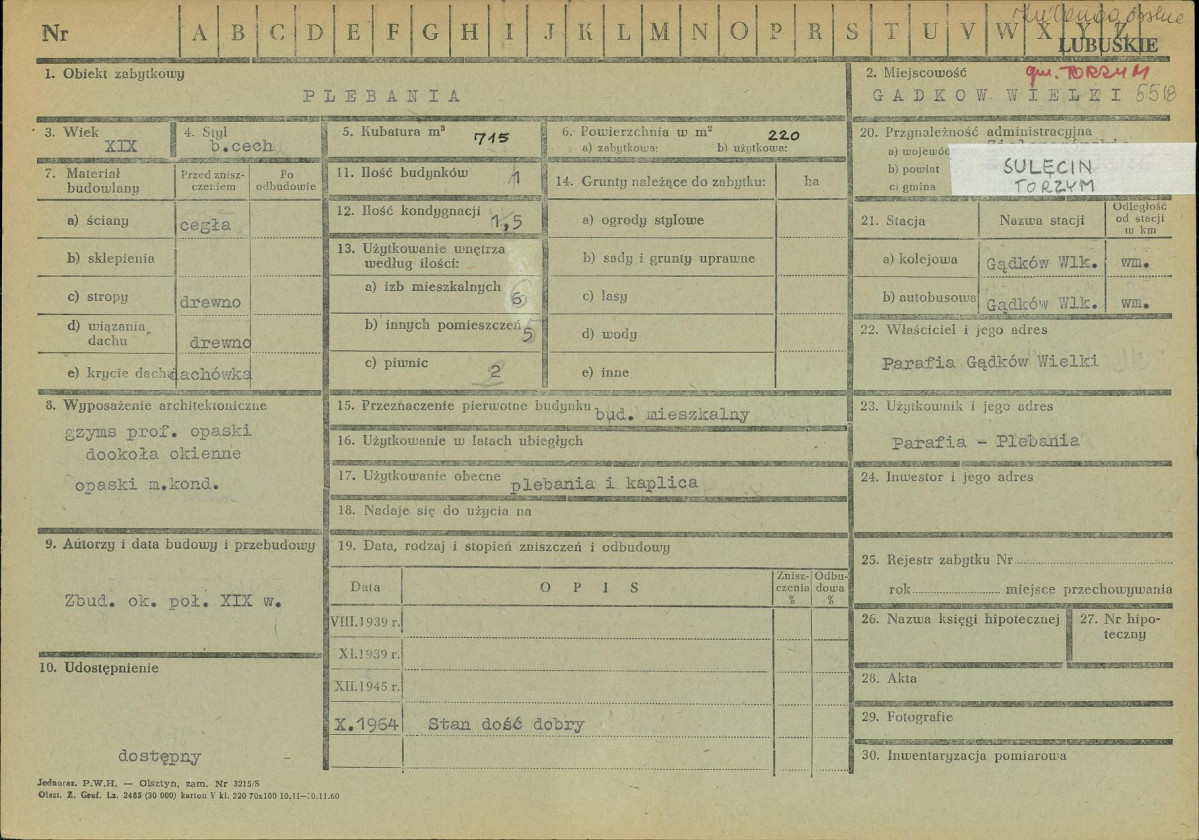 Nr A B C D E F G H I J K L M N O P R S T U V W X Y Z
LUBUSKIE
1. Obiekt zabytkowy
PLEBANIA
2. Miejscowość
gm. TORZYM
GADKOW WIELKI 5518
3. Wiek
XIX
4. Styl
b.cech
5. Kubatura m³ 715
6. Powierzchnia w m² 220
a) zabytkowa: b) użytkowa:
20. Przynależność administracyjna
a) wojewó
b) powiat
c) gmina
SULĘCIN
TORZYM
7. Materiał budowlany
Przed zniszczeniem
Po odbudowie
a) ściany cegła
b) sklepienia
c) stropy drewno
d) wiązania dachu drewno
e) krycie dachu dachówka
11. Ilość budynków 1
12. Ilość kondygnacji 1,5
13. Użytkowanie wnętrza
według ilości:
a) izb mieszkalnych 6
b) innych pomieszczeń 5
c) piwnic 2
14. Grunty należące do zabytku: ha
a) ogrody stylowe
b) sady i grunty uprawne
c) lasy
d) wody
e) inne
21. Stacja Nazwa stacji
Odległość
od stacji
w km
a) kolejowa Gądków Wlk. wm.
b) autobusowa Gądków Wlk. wm.
22. Właściciel i jego adres
Parafia Gądków Wielki
8. Wyposażenie architektoniczne
gzyms prof. opaski
dookoła okienne
opaski m.kond.
15. Przeznaczenie pierwotne budynku bud. mieszkalny
16. Użytkowanie w latach ubiegłych
17. Użytkowanie obecne plebania i kaplica
18. Nadaje się do użycia na
23. Użytkownik i jego adres
Parafia - Plebania
24. Inwestor i jego adres
9. Autorzy i data budowy i przebudowy
Zbud. ok. poł. XIX w.
10. Udostępnienie
dostępny
19. Data, rodzaj i stopień zniszczeń i odbudowy
Data OPIS
Zniszczenia %
Odbudowa %
VIII.1939 r.
XI.1939 r.
XII.1945 r.
X.1964 Stan dość dobry
25. Rejestr zabytku Nr
rok miejsce przechowywania
26. Nazwa księgi hipotecznej
27. Nr hipoteczny
28. Akta
29. Fotografie
30. Inwentaryzacja pomiarowa
Jednoraz. P.W.H. — Olsztyn, zam. Nr 3215/S
Olszt. Z. Graf. Lz. 2485 (30 000) karton V kl. 220 70x100 10.11—10.11.60